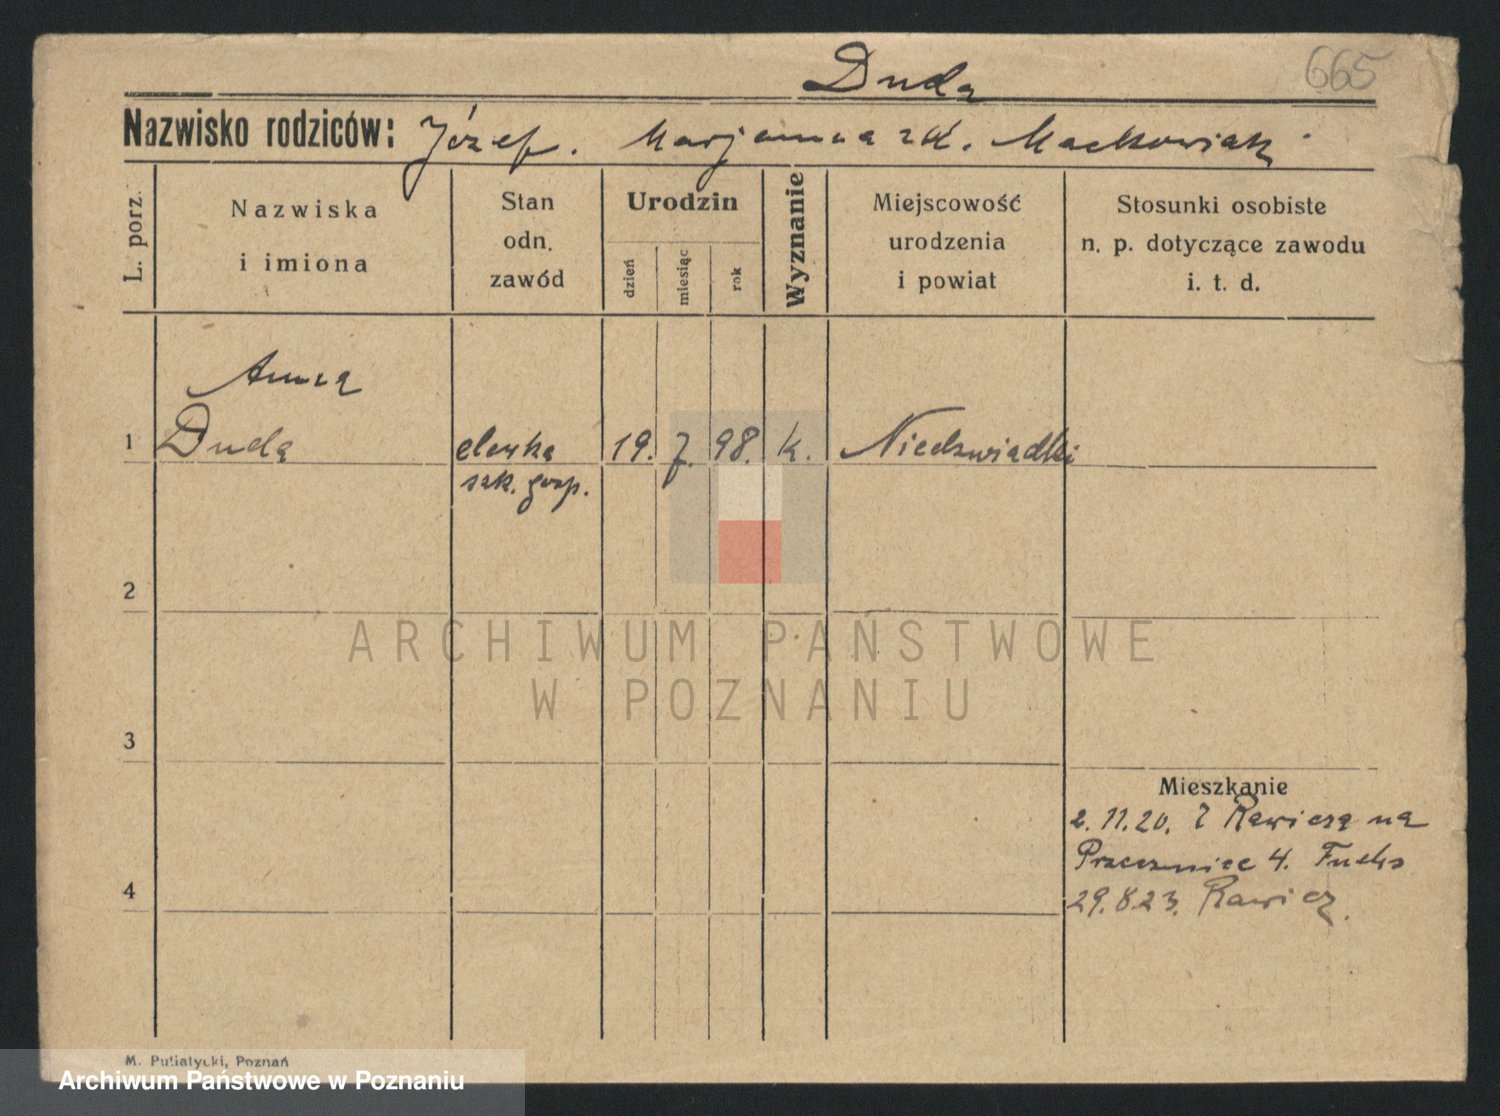 Duda
665
Nazwisko rodziców: Józef. Marjanna zd. Maćkowiak
L. porz.
Nazwiska
i imiona
Stan
odn.
zawód
Urodzin
dzień
miesiąc
rok
Wyznanie
Miejscowość
urodzenia
i powiat
Stosunki osobiste
n. p. dotyczące zawodu
i. t. d.
Anna
1 Duda elewka 19. 7. 98. k. Niedzwiadki
szk. gosp.
2
ARCHIWUM PAŃSTWOWE
W POZNANIU
3
Mieszkanie
2. 11. 20. Z Rawicza na
Przecznice 4. Fuchs
4
29. 8. 23. Rawicz.
M. Putiatycki, Poznań
Archiwum Państwowe w Poznaniu